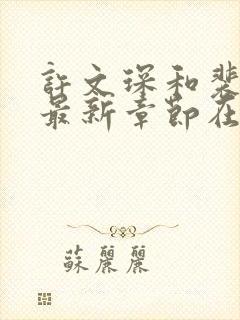 許文琛和裴
最新章節在
蘇麗麗